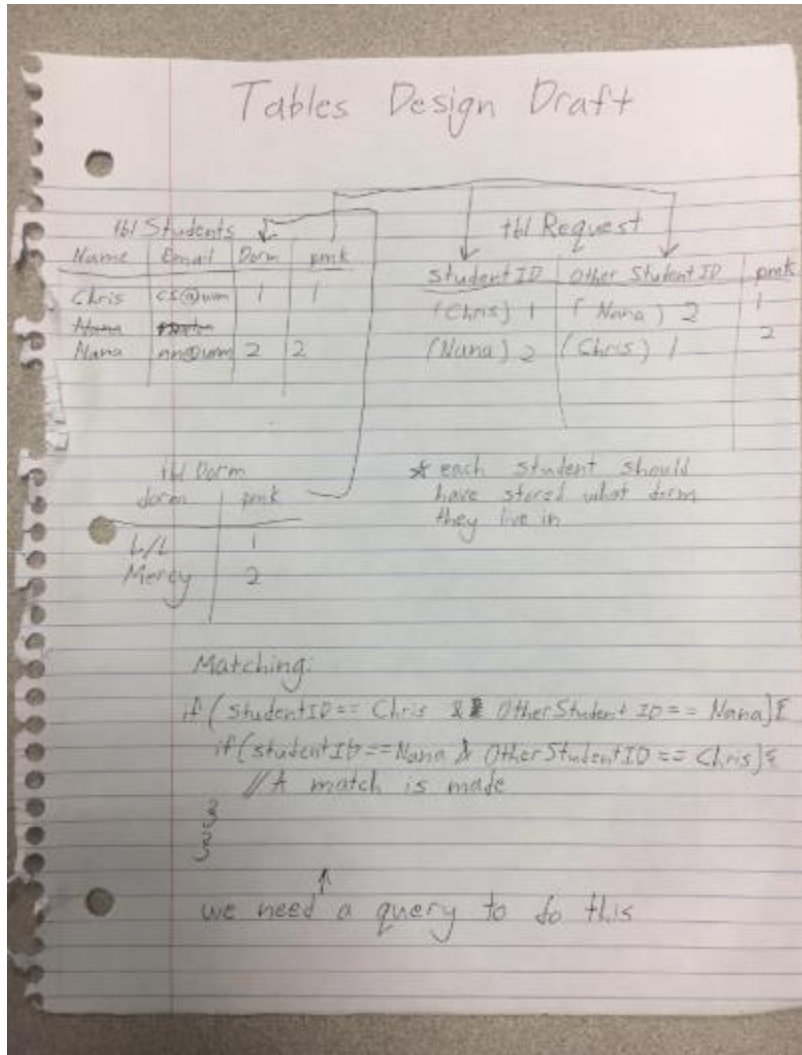 Tables Design Draft
tbl Students
Name Email Dorm pmk
Chris cs@uwm 1 1
Nana
Nana nn@uwm 2 2
tbl Request
studentID Other StudentID pmk
(Chris) 1 (Nana) 2 1
(Nana) 2 (Chris) 1 2
tbl Dorm
dorm pmk
L/L 1
Mercy 2
* each student should
have stored what dorm
they live in
Matching:
if (StudentID == Chris && OtherStudent ID == Nana){
if(studentID==Nana & OtherStudentID == Chris){
//A match is made
}
}
we need a query to do this